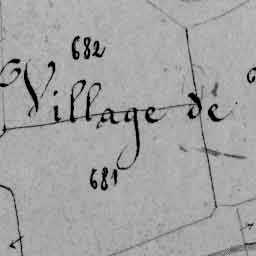 682
Village de
681